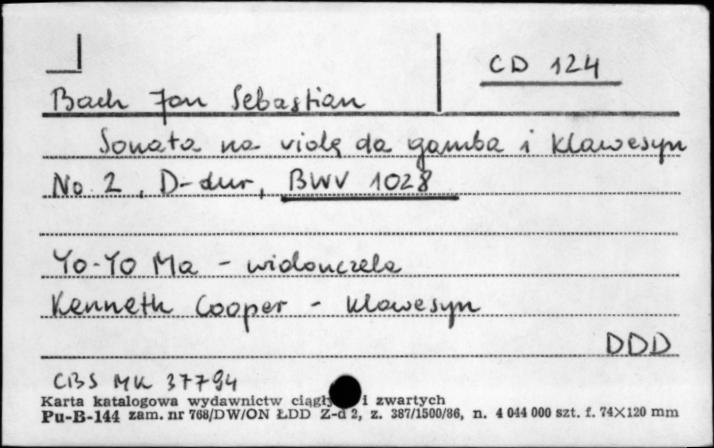 CD 124
Bach Jan Sebastian
Sonata na violę da gamba i klawesyn
No 2, D-dur, BWV 1028
Yo-Yo Ma - wiolonczela
Kenneth Cooper - klawesyn
DDD
CBS MK 37794
Karta katalogowa wydawnictw ciągły i zwartych
Pu-B-144 zam. nr 768/DW/ON ŁDD Z-d 2, z. 387/1500/86, n. 4 044 000 szt. f. 74×120 mm